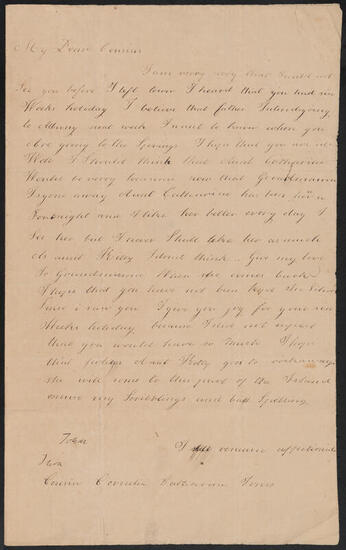 My Dear Cousin
I am very sory that I could not
See you before I left town I heard that you had six
Weeks holiday I believe that father Intends going
to Albany next week I want to know when you
Are going to the Springs I hope that you are
Well I Should think that Aunt Catharine
Would be very lonesome now that Grandmamma
Is gone away Aunt Catharine has been here a
Fortnight and I like her better every day I
See her but I never Shall like her as much
As Aunt Kitty I dont think. Give my love
To Grandmamma When she comes back
I hope that you have not been kept in School
Since I saw you I give you joy for your six
Weeks holiday because I did not expect
that you would have so much I hope
that perhaps Aunt Kitty goes to
she will come to this part of the Island
excuse my Scribblings and bad Spelling
I remain affectionate
Your
Cousin Cornelia Catharine Jones